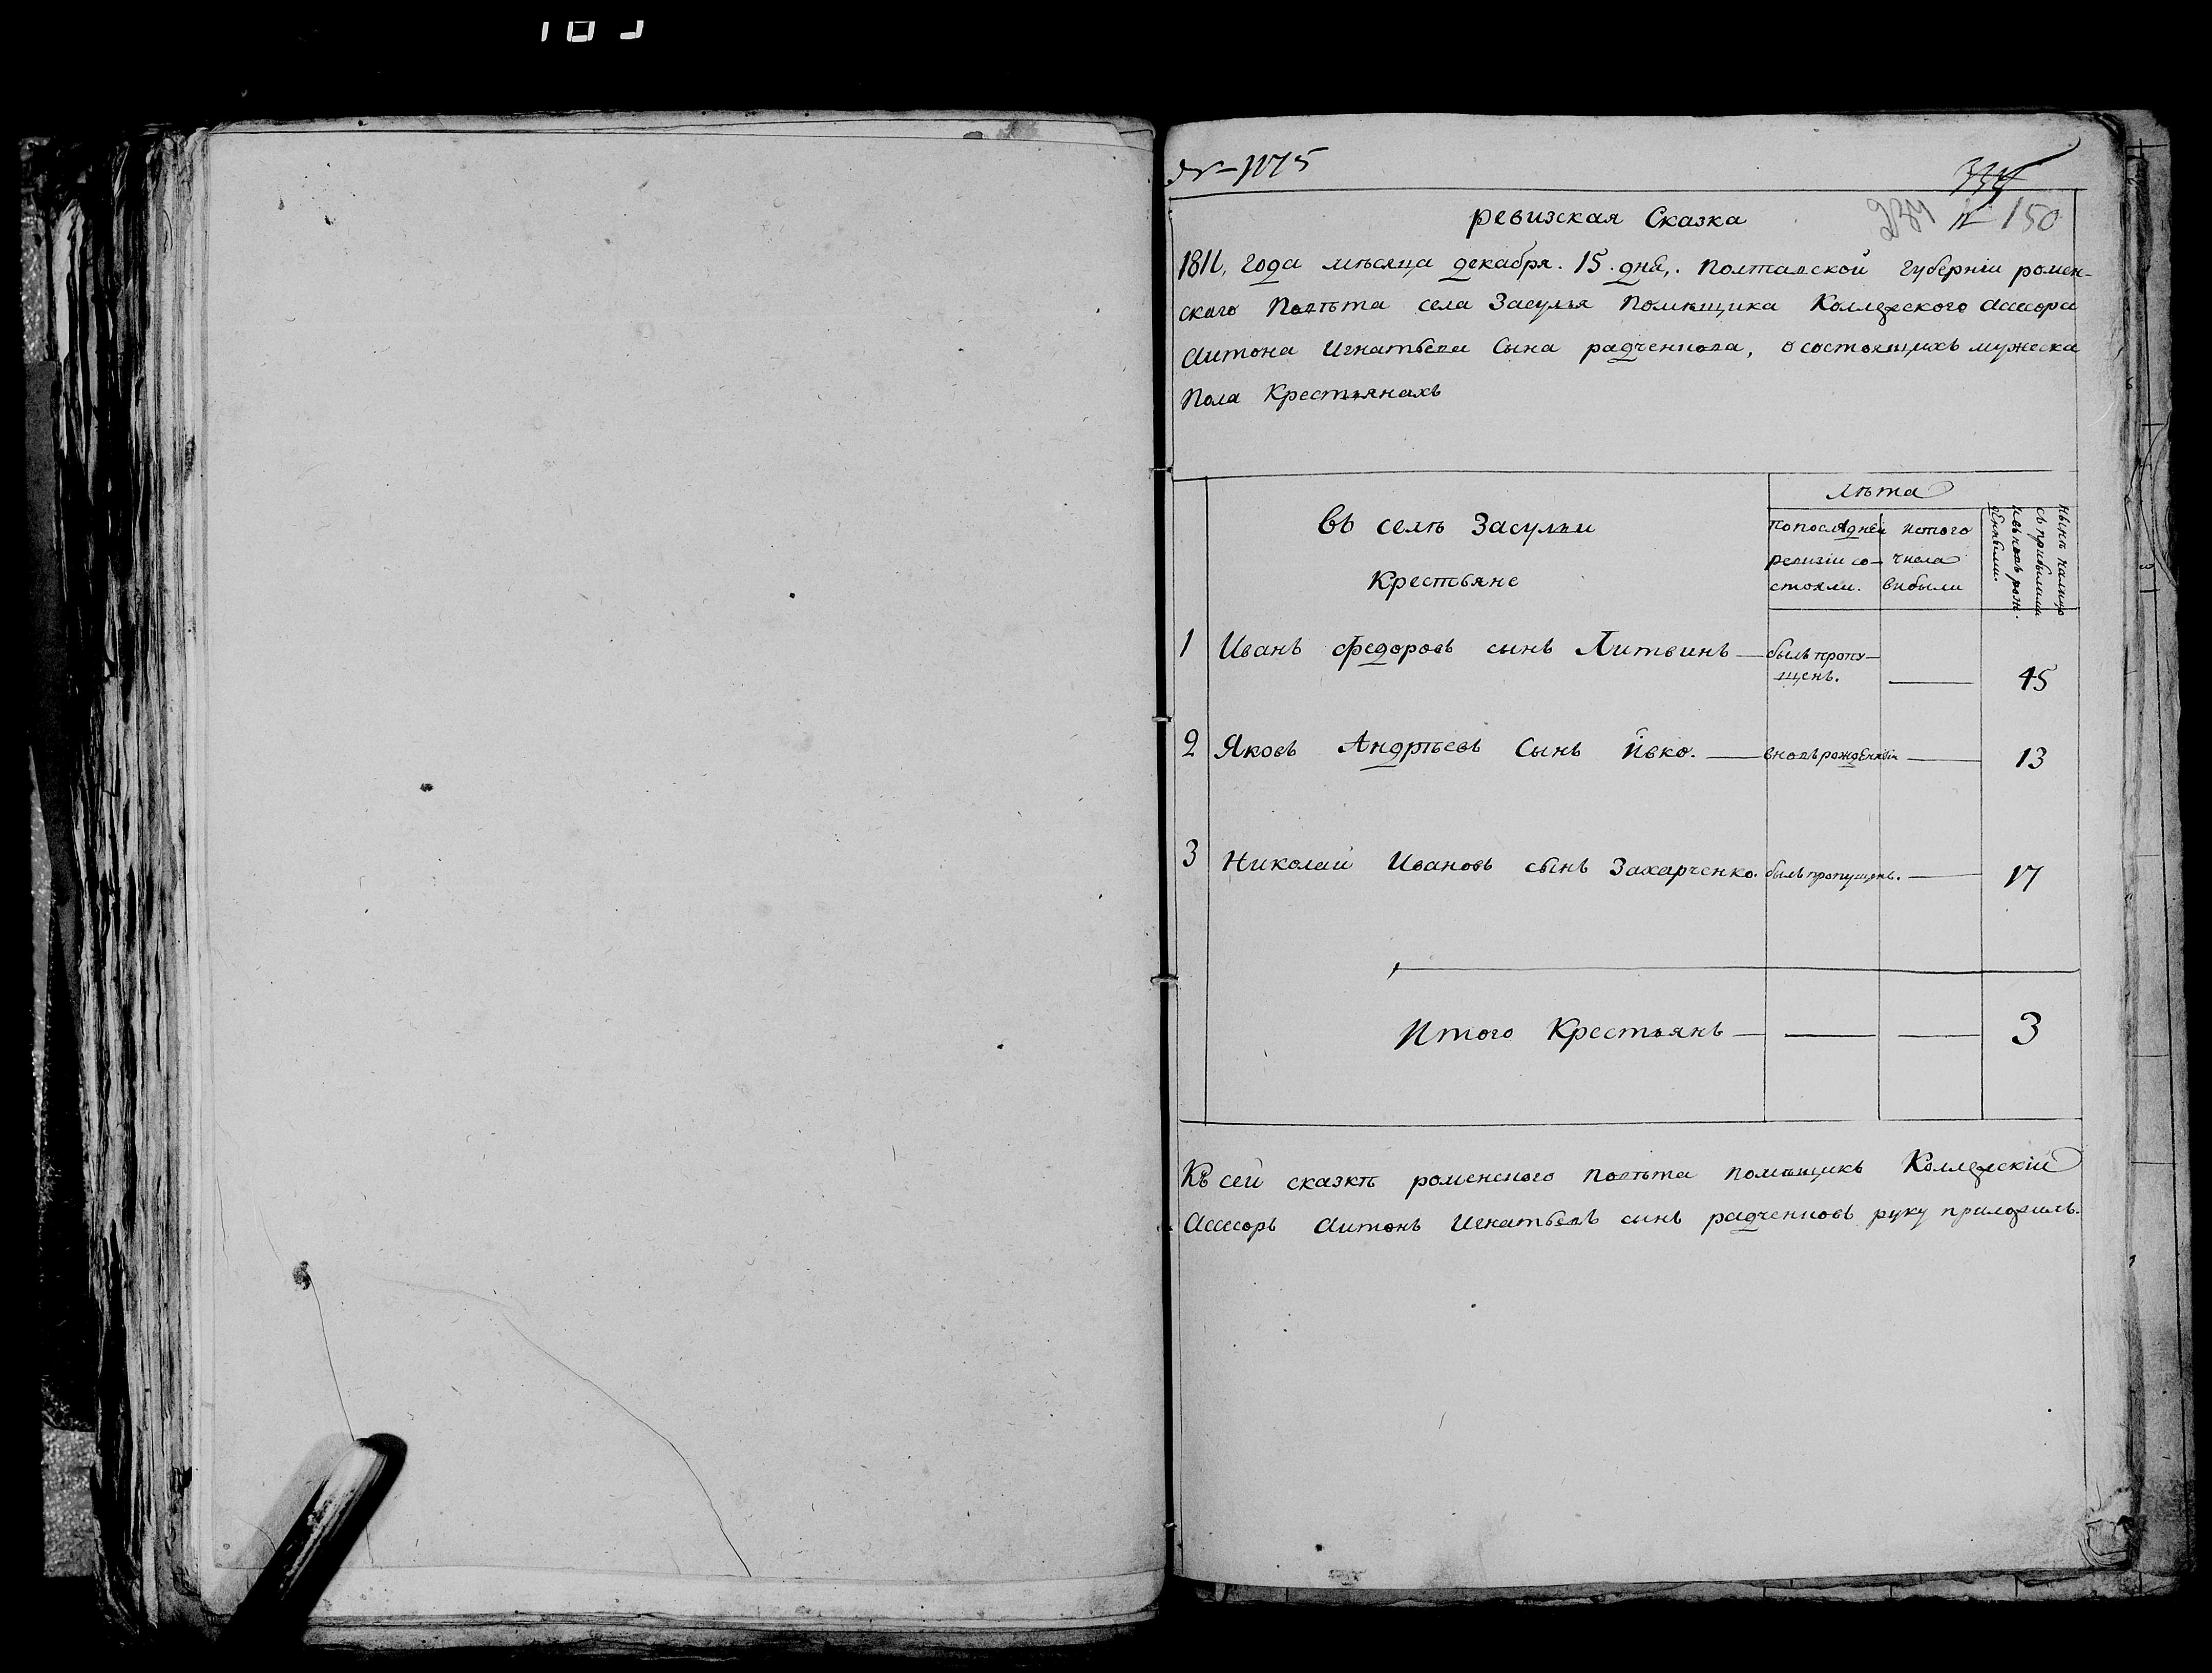 № 1175
334
234 № 150
ревизская Сказка
1811, года мѣсяца декабря. 15. дня, Полтавской губерніи ромен-
скаго Повѣта села Засулья Помѣщика Коллежского Асессора
Антона Игнатьева Сына радченкова, о состоящихъ мужеска
Пола Крестьянахъ
въ селѣ Засульи
Крестьяне
лѣта
по последней ревизіи со-
стояли.
изтого
числа
выбыли
нынѣ налицо
съ прибылими
и вновь рож-
денными.
1 Иванъ Федоровъ сынъ Литвинъ — былъ пропу-
щенъ. — 45
2 Яковъ Андрѣевъ Сынъ Ивко. — вновь рожденній — 13
3 Николай Ивановъ сынъ Захарченко. былъ пропущенъ. — 17
Итого Крестьянъ — — — 3
Къ сей сказкѣ роменского повѣта помѣщикъ Коллежскій
Асессоръ Антонъ Игнатьевъ синъ радченковъ руку приложилъ.